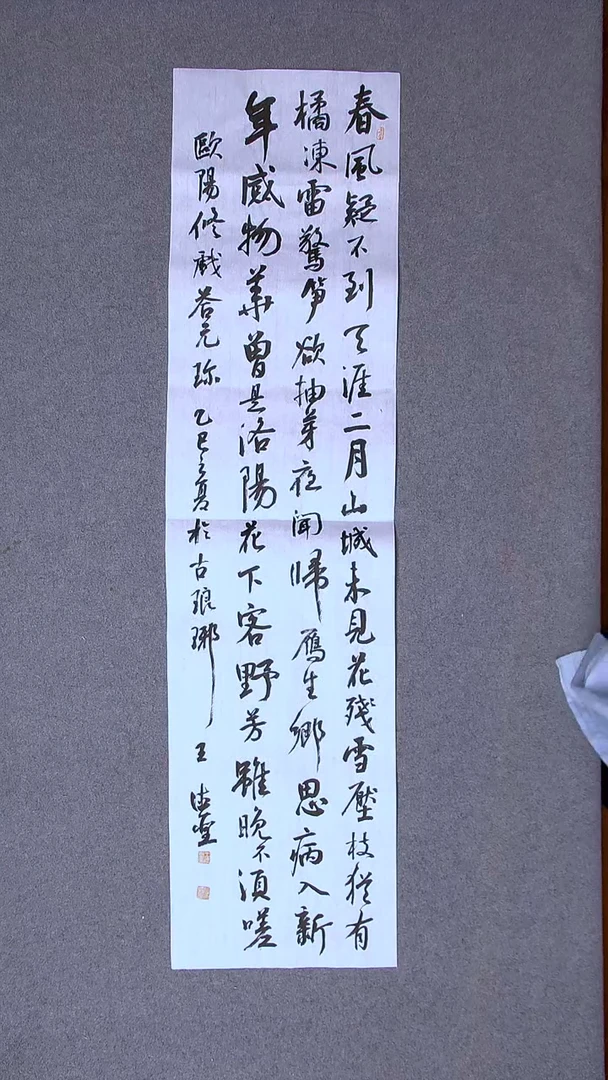 春風疑不到天涯二月山城未見花殘雪壓枝猶有
橘凍雷驚笋欲抽芽夜聞歸雁生鄉思病入新
年感物華曾是洛陽花下客野芳雖晚不須嗟
歐陽修戲答元珍乙巳之夏於古琅琊王